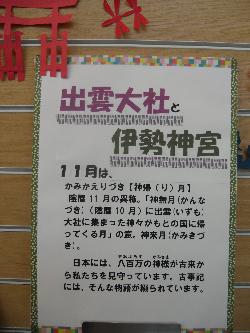 出雲大社と
伊勢神宮
11月は、
かみかえりづき【神帰(り)月】
陰暦11月の異称。「神無月(かんな
づき)(陰暦10月)に出雲(いずも)
大社に集まった神々がもとの国に帰
ってくる月」の意。神来月(かみきづ
き)。
日本には、八百万の神様が古来か
ら私たちを見守っています。古事記
には、そんな物語が綴られています。